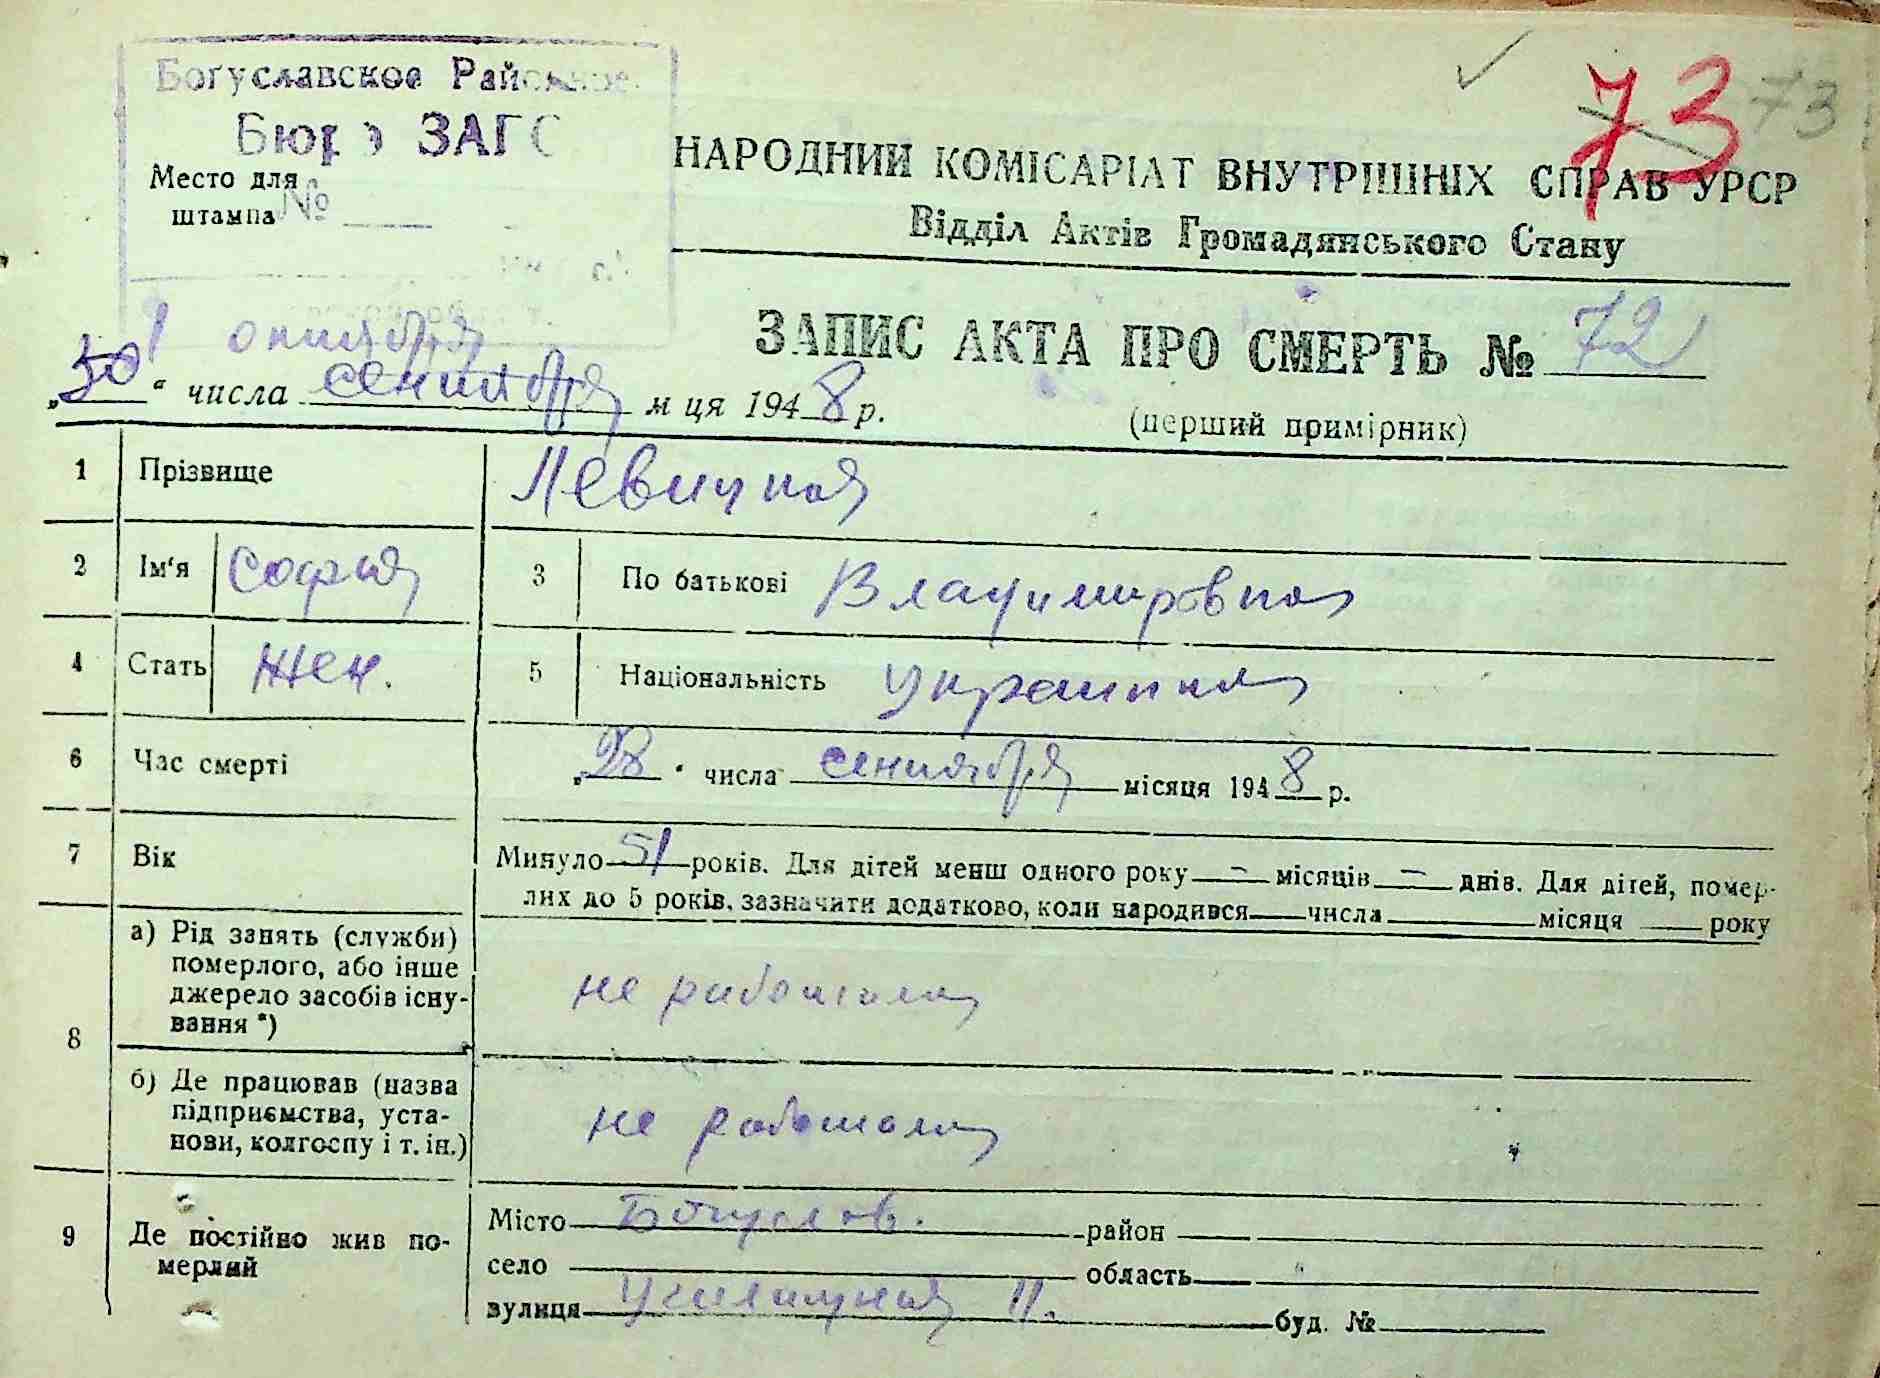 Богуславское Районное
Бюро ЗАГС
Место для
штампа №
73 73
НАРОДНИЙ КОМІСАРІАТ ВНУТРІШНІХ СПРАВ УРСР
Відділ Актів Громадянського Стану
ЗАПИС АКТА ПРО СМЕРТЬ № 72
(перший примірник)
1 октября
„30“ числа сентября м ця 1948 р.
1 Прізвище Левицкая
2 Ім'я Софья 3 По батькові Владимировна
4 Стать жен. 5 Національність украинка
6 Час смерті „28“ числа сентября місяця 1948 р.
7 Вік Минуло 51 років. Для дітей менш одного року – місяців – днів. Для дітей, помер-
лих до 5 років, зазначити додатково, коли народився числа місяця року
8 а) Рід занять (служби)
померлого, або інше
джерело засобів існу-
вання *)
не работала
б) Де працював (назва
підприємства, уста-
нови, колгоспу і т. ін.)
не работала
9 Де постійно жив по-
мерлий
Місто Богуслав. район
село область
вулиця 11. буд. №